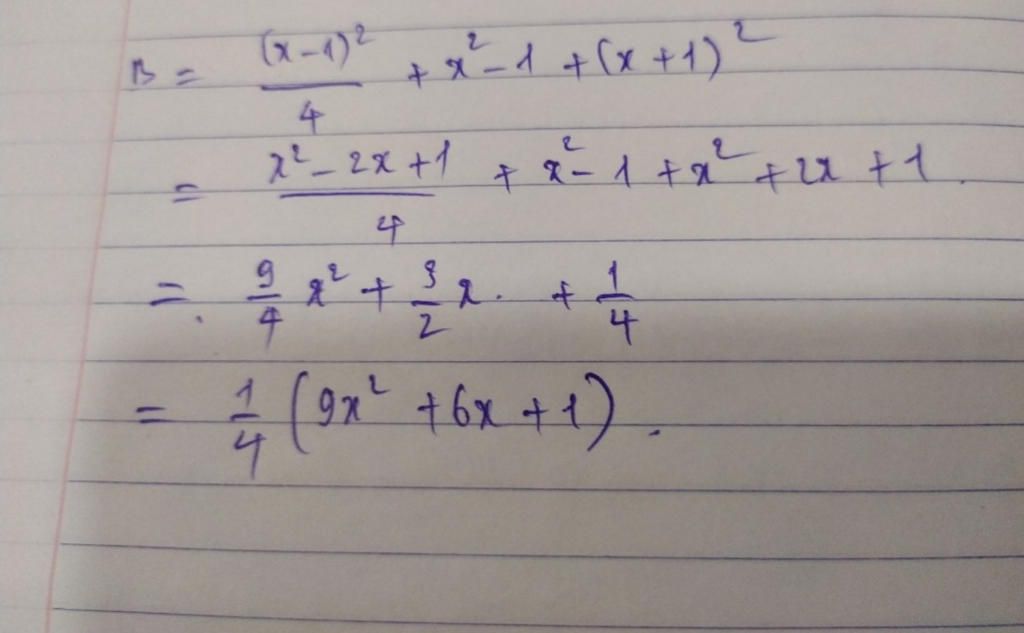 B = (x-1)²/4 + x²-1 + (x+1)²
= x²-2x+1/4 + x²-1 + x² + 2x + 1.
= 9/4 x² + 3/2 x. + 1/4
= 1/4 (9x² + 6x + 1).